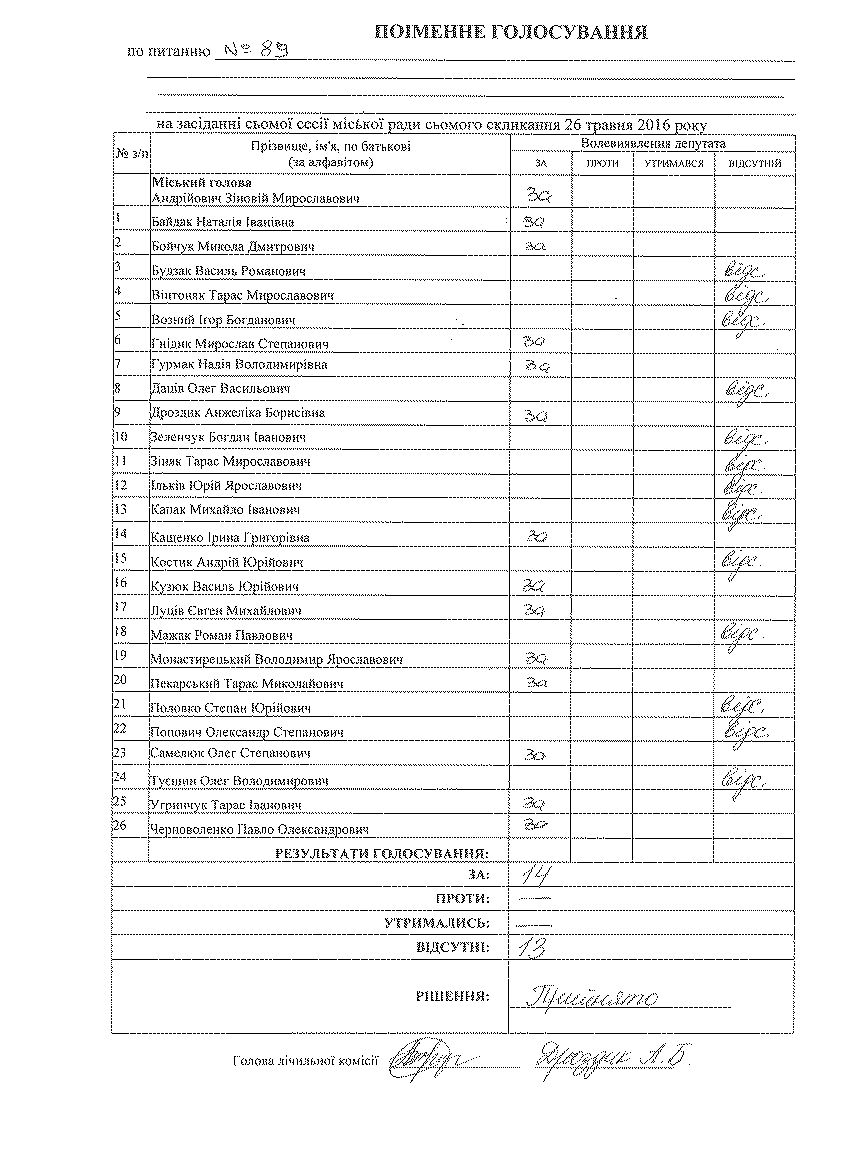 ПОІМЕННЕ ГОЛОСУВАННЯ
по питанню № 89
на засіданні сьомої сесії міської ради сьомого скликання 26 травня 2016 року
№ з/п Прізвище, ім'я, по батькові (за алфавітом) Волевиявлення депутата
ЗА ПРОТИ УТРИМАВСЯ ВІДСУТНІЙ
Міський голова
Андрійович Зіновій Мирославович За
1 Байдак Наталія Іванівна За
2 Бойчук Микола Дмитрович За
3 Будзак Василь Романович відс.
4 Вінтоняк Тарас Мирославович відс.
5 Возний Ігор Богданович відс.
6 Гнідик Мирослав Степанович За
7 Гурмак Надія Володимирівна За
8 Даців Олег Васильович відс.
9 Дроздик Анжеліка Борисівна За
10 Зеленчук Богдан Іванович відс.
11 Зіняк Тарас Мирославович відс.
12 Ільків Юрій Ярославович відс.
13 Капак Михайло Іванович відс.
14 Кащенко Ірина Григорівна За
15 Костик Андрій Юрійович відс.
16 Кузюк Василь Юрійович За
17 Луців Євген Михайлович За
18 Мажак Роман Павлович відс.
19 Монастирецький Володимир Ярославович За
20 Пекарський Тарас Миколайович За
21 Половко Степан Юрійович відс.
22 Попович Олександр Степанович відс.
23 Самелюк Олег Степанович За
24 Туєшин Олег Володимирович відс.
25 Угринчук Тарас Іванович За
26 Черноволенко Павло Олександрович За
РЕЗУЛЬТАТИ ГОЛОСУВАННЯ:
ЗА: 14
ПРОТИ: —
УТРИМАЛИСЬ: —
ВІДСУТНІ: 13
РІШЕННЯ: Прийнято
Голова лічильної комісії Дроздик А.Б.